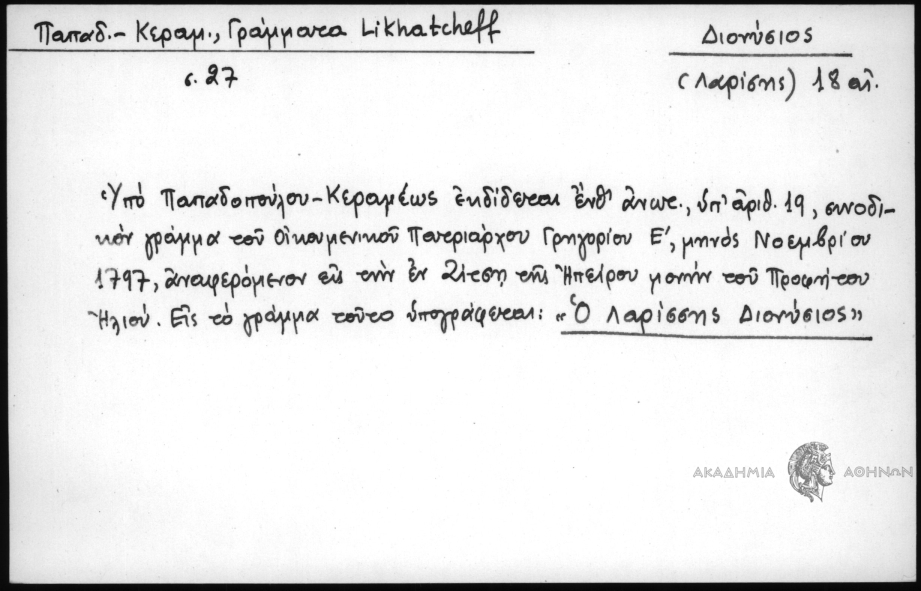 Παπαδ.- Κεραμ., Γράμματα Likhatcheff
Διονύσιος
σ. 27
(Λαρίσης) 18 αἰ.
Ὑπὸ Παπαδοπούλου-Κεραμέως ἐκδίδεται ἔνθ' ἀνωτ., ὑπ' ἀριθ. 19, συνοδι-
κὸν γράμμα τοῦ Οἰκουμενικοῦ Πατριάρχου Γρηγορίου Ε', μηνὸς Νοεμβρίου
1797, ἀναφερόμενον εἰς τὴν ἐν Ζίτσῃ τῆς Ἠπείρου μονὴν τοῦ Προφήτου
Ἠλιού. Εἰς τὸ γράμμα τοῦτο ὑπογράφεται: «Ὁ Λαρίσσης Διονύσιος»
ΑΚΑΔΗΜΙΑ ΑΘΗΝΩΝ